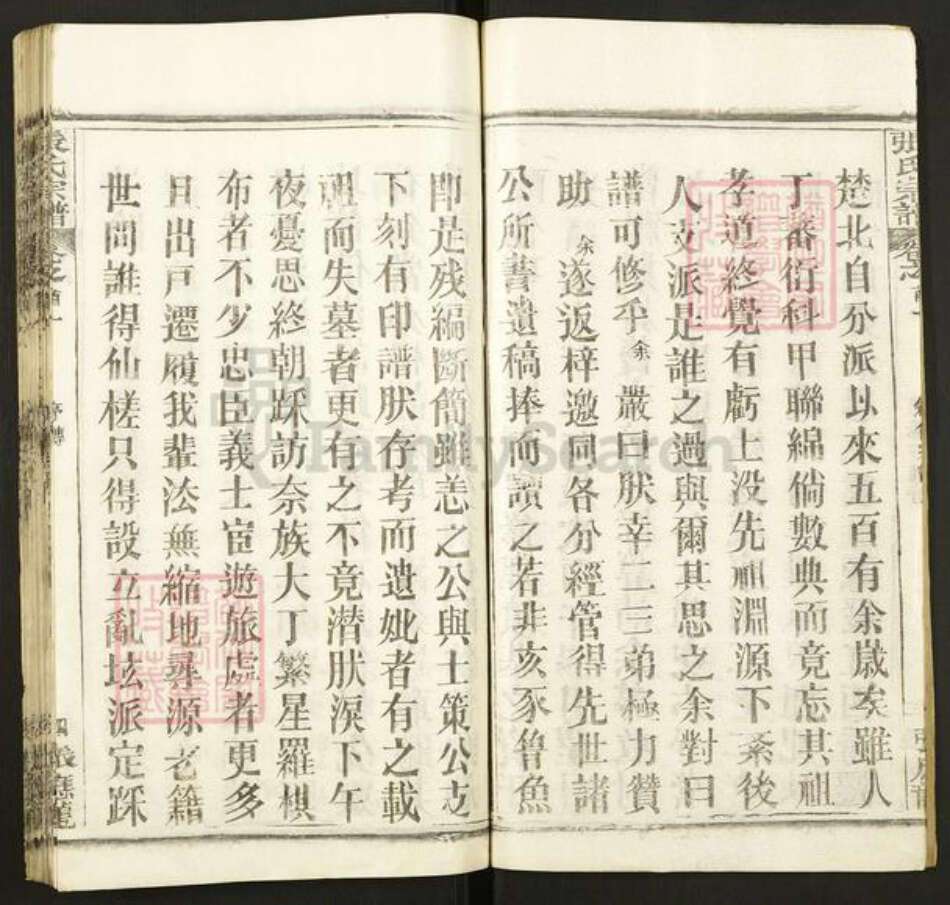 張氏宗譜
楚北自分派以來五百有余歲矣雖人
丁蕃衍科甲聯綿倘數典而竟忘其祖
孝道終覺有虧上没先祖淵源下紊後
人支派是誰之過與爾其思之余對曰
譜可修乎余嚴曰肰幸二三弟極力贊
助余遂返梓邀同各分經管得先世諸
公所著遺稿捧而讀之若非亥豕魯魚
即是残編斷簡雖恙之公與士策公支
下刻有印譜肰存考而遺妣者有之載
誕而失墓者更有之不竟潜肰淚下午
夜憂思終朝踩訪奈族大丁繁星羅棋
布者不少忠臣義士宦遊旅處者更多
且出戸遷履我輩法無縮地尋源老籍
世問誰得仙槎只得設立亂坛派定踩
張氏宗譜
四
FamilySearch